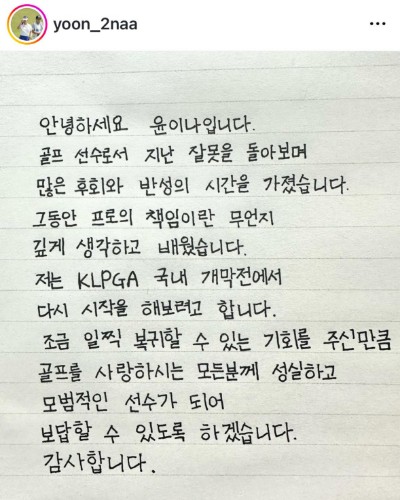 yoon_2naa
안녕하세요 윤이나입니다.
골프 선수로서 지난 잘못을 돌아보며
많은 후회와 반성의 시간을 가졌습니다.
그동안 프로의 책임이란 무언지
깊게 생각하고 배웠습니다.
저는 KLPGA 국내 개막전에서
다시 시작을 해보려고 합니다.
조금 일찍 복귀할 수 있는 기회를 주신만큼
골프를 사랑하시는 모든분께 성실하고
모범적인 선수가 되어
보답할 수 있도록 하겠습니다.
감사합니다.